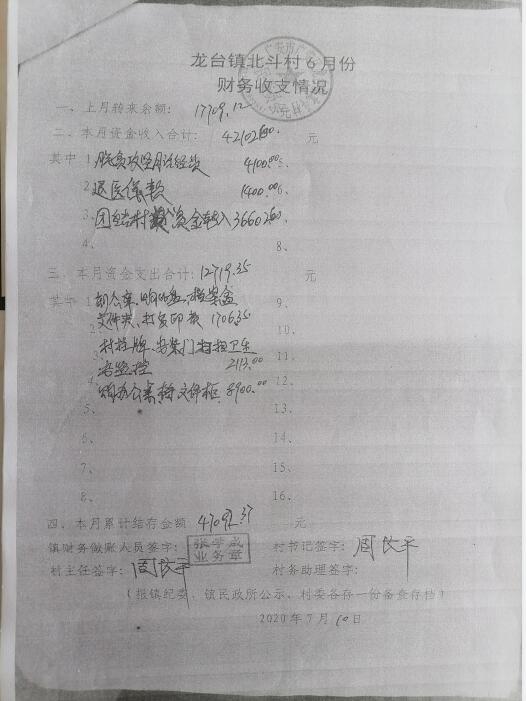 龙台镇北斗村6月份
财务收支情况
一、上月转来余额: 17709.12
二、本月资金收入合计: 42102.60 元
其中 1、脱贫攻坚 经费 4100.00 5、
2、退医保款 1400.00 6、
3、团结村 资金转入 36602.60
4、 8、
三、本月资金支出合计: 12719.35 元
其中 1、 档案盒 9、
文件夹、打复印费 1706.35 10、
村挂牌、安装门 打扫卫生 11、
监控 2113.00
4、购办公桌椅文件柜 8900.00 12、
5、 13、
6、 14、
7、 15、
8、 16、
四、本月累计结存金额 47092.37 元
镇财务做账人员签字: 张学成 业务章 村书记签字: 周长平
村主任签字: 周长平 村务助理签字:
(报镇纪委、镇民政所公示、村委各存一份备查存档)
2020年7月10日